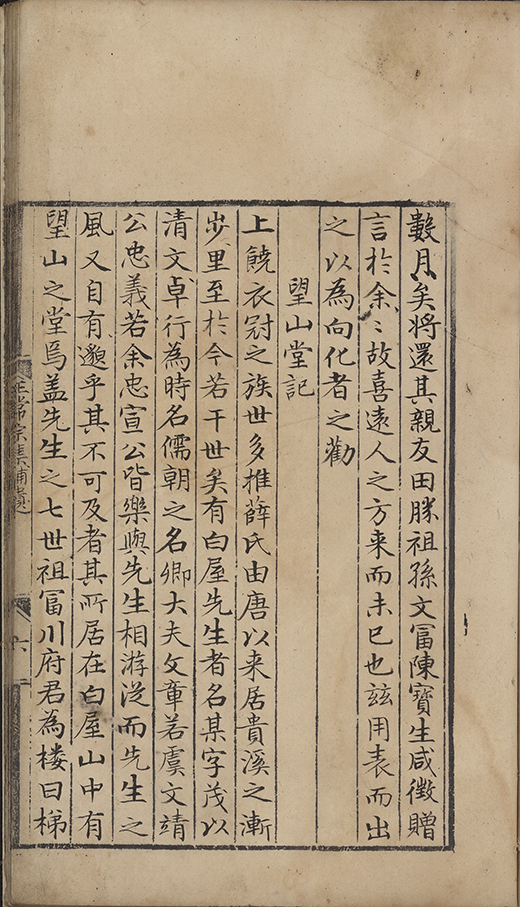 數月矣將還其親友田勝祖孫文冨陳寶生咸徵贈
言於余〻故喜遠人之方来而未已也兹用表而出
之以為向化者之勸
望山堂記
上饒衣冠之族世多推薛氏由唐以来居貴溪之漸
步里至於今若干世矣有白屋先生者名某字茂以
清文卓行為時名儒朝之名卿大夫文章若虞文靖
公忠義若余忠宣公皆樂與先生相游泛而先生之
風又自有邈乎其不可及者其所居在白屋山中有
望山之堂焉盖先生之七世祖冨川府君為楼曰梯
王常宗集補遺
六